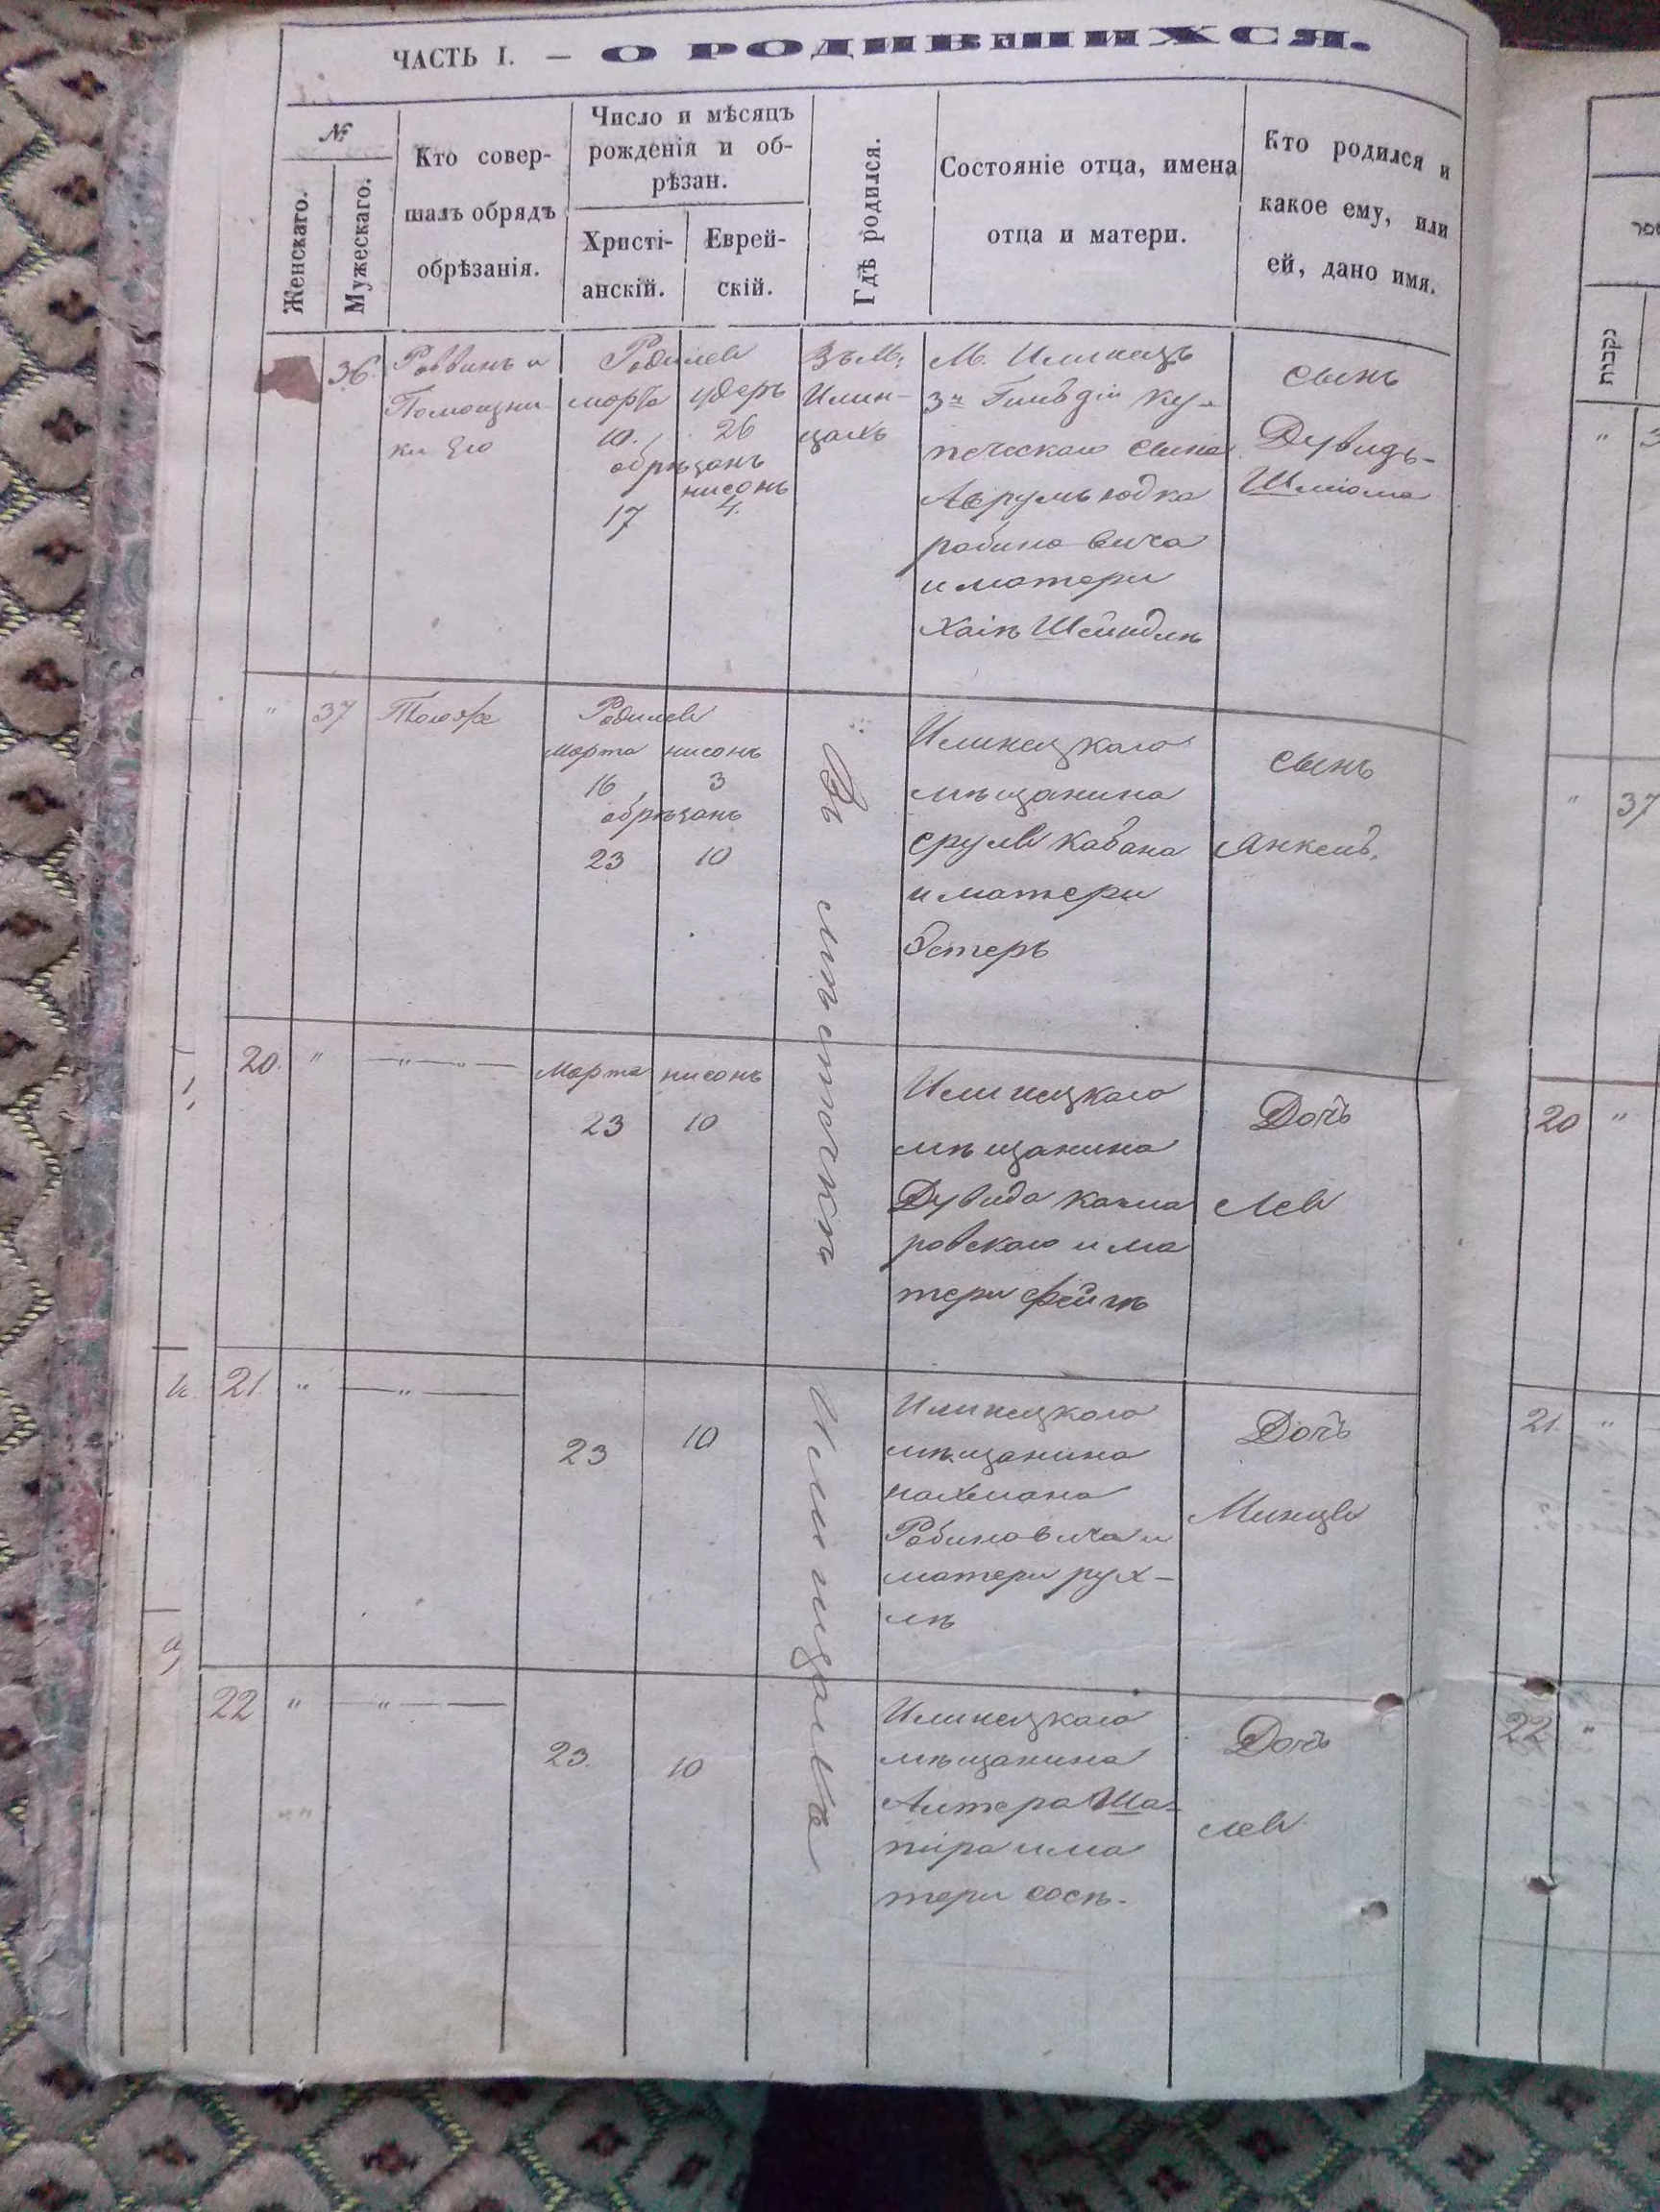 ЧАСТЬ I. — О РОДИВШИХСЯ.
№
Женскаго.
Мужескаго.
Кто совер-
шалъ обрядъ
обрѣзанія.
Число и мѣсяцъ
рожденія и об-
рѣзан.
Христі-
анскій.
Еврей-
скій.
Гдѣ родился.
Состояніе отца, имена
отца и матери.
Кто родился и
какое ему, или
ей, дано имя.
36.
Раввинъ и
Помощни
ки Его
Родился
марта
10.
адеръ
26
обрѣзанъ
нисонъ
17
4.
Въ М:
Илин-
цахъ
М. Илинецъ
3й Гильдіи Ку-
печескаго сына
Аврумъ Юдка
рабиновича
и матери
Хаіи Шейндли
сынъ
Дувидъ-
Шлiома
"
37
Родился
марта
нисонъ
16
3
обрѣзанъ
23
10
Въ мѣстечкѣ Илинцахъ
Илинецкаго
мѣщанина
Сруля Кабана
и матери
Эстеръ
сынъ
Янкель.
20.
"
— " — " —
Марта
нисонъ
23
10
Илинецкаго
мѣщанина
Дувида
ровскаго и ма
тери Фейги
Дочь
Лея
21.
"
— " —
23
10
Илинецкаго
мѣщанина
нахмана
Рабиновича и
матери рух-
ли
Дочь
Минця
22
"
— " —
23.
10
Илинецкаго
мѣщанина
Алтера Ша-
пира и ма
тери соси.
Дочь
лея
"
37
20
"
21.
"
22
"